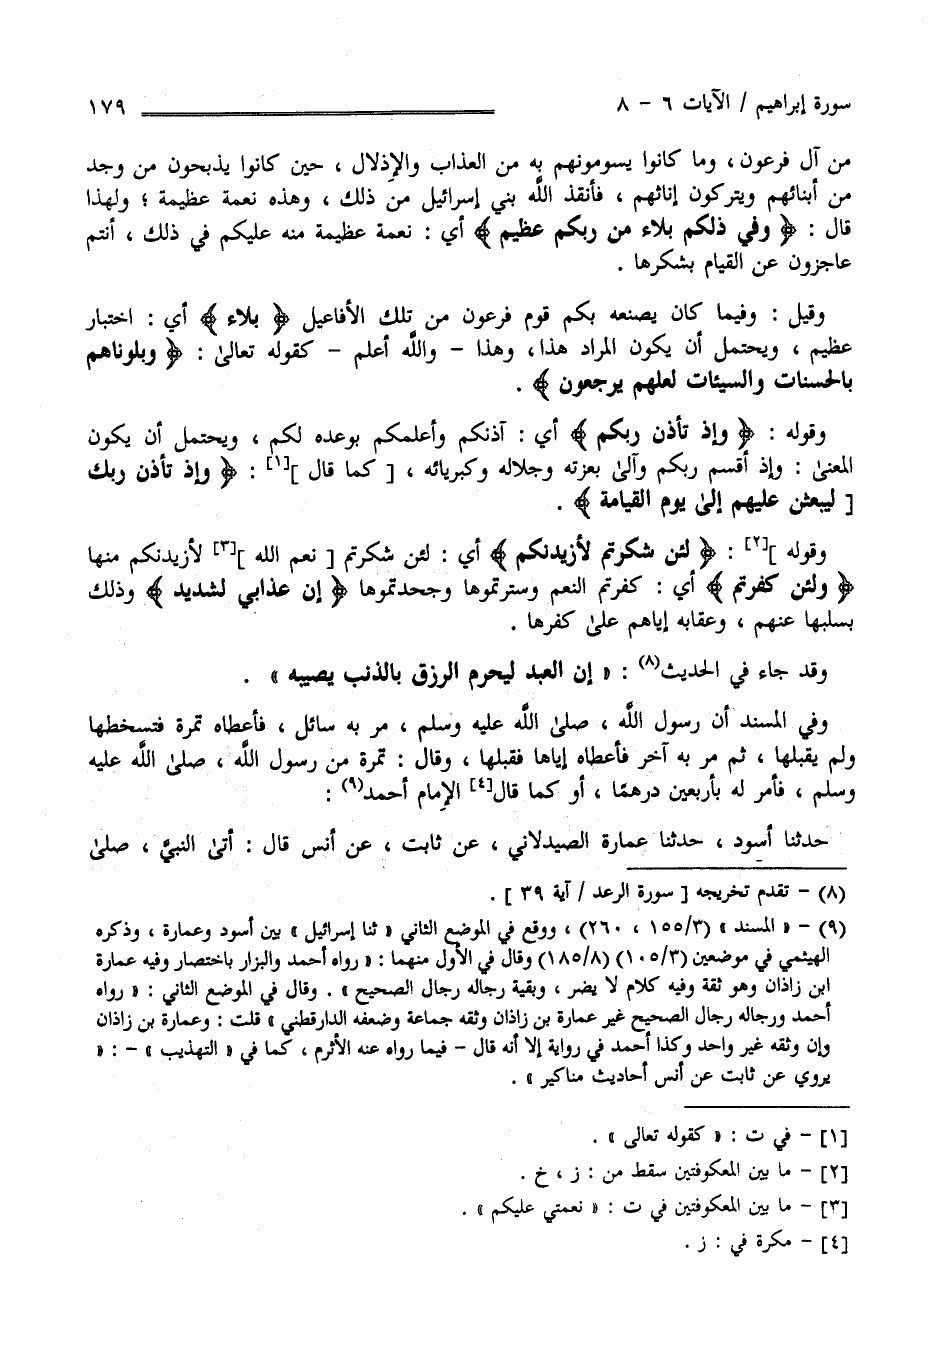 سورة إبراهيم / الآيات ٦ - ٨ ١٧٩
من آل فرعون ، وما كانوا يسومونهم به من العذاب والإذلال ، حين كانوا يذبحون من وجد
من أبنائهم ويتركون إناثهم ، فأنقذ الله بني إسرائيل من ذلك ، وهذه نعمة عظيمة ؛ ولهذا
قال : ﴿ وفي ذلكم بلاء من ربكم عظيم ﴾ أي : نعمة عظيمة منه عليكم في ذلك ، أنتم
عاجزون عن القيام بشكرها .
وقيل : وفيما كان يصنعه بكم قوم فرعون من تلك الأفاعيل ﴿ بلاء ﴾ أي : اختبار
عظيم ، ويحتمل أن يكون المراد هذا ، وهذا - والله أعلم - كقوله تعالىٰ : ﴿ وبلوناهم
بالحسنات والسيئات لعلهم يرجعون ﴾ .
وقوله : ﴿ وإذ تأذن ربكم ﴾ أي : آذنكم وأعلمكم بوعده لكم ، ويحتمل أن يكون
المعنىٰ : وإذ أقسم ربكم وآلىٰ بعزته وجلاله وكبريائه ، [ كما قال ][١] : ﴿ وإذ تأذن ربك
[ ليبعثن عليهم إلىٰ يوم القيامة ﴾ .
وقوله ][٢] : ﴿ لئن شكرتم لأزيدنكم ﴾ أي : لئن شكرتم [ نعم الله ][٣] لأزيدنكم منها
﴿ ولئن كفرتم ﴾ أي : كفرتم النعم وسترتموها وجحدتموها ﴿ إن عذابي لشديد ﴾ وذلك
بسلبها عنهم ، وعقابه إياهم علىٰ كفرها .
وقد جاء في الحديث(٨) : « إن العبد ليحرم الرزق بالذنب يصيبه » .
وفي المسند أن رسول الله ، صلىٰ الله عليه وسلم ، مر به سائل ، فأعطاه تمرة فتسخطها
ولم يقبلها ، ثم مر به آخر فأعطاه إياها فقبلها ، وقال : تمرة من رسول الله ، صلىٰ الله عليه
وسلم ، فأمر له بأربعين درهمًا ، أو كما قال[٤] الإمام أحمد(٩) :
حدثنا أسود ، حدثنا عمارة الصيدلاني ، عن ثابت ، عن أنس قال : أتىٰ النبيَّ ، صلىٰ
(٨) - تقدم تخريجه [ سورة الرعد / آية ٣٩ ] .
(٩) - « المسند » (١٥٥/٣ ، ٢٦٠) ، ووقع في الموضع الثاني « ثنا إسرائيل » بين أسود وعمارة ، وذكره
الهيثمي في موضعين (١٠٥/٣) (١٨٥/٨) وقال في الأول منهما : « رواه أحمد والبزار باختصار وفيه عمارة
ابن زاذان وهو ثقة وفيه كلام لا يضر ، وبقية رجاله رجال الصحيح » . وقال في الموضع الثاني : « رواه
أحمد ورجاله رجال الصحيح غير عمارة بن زاذان وثقه جماعة وضعفه الدارقطني » قلت : وعمارة بن زاذان
وإن وثقه غير واحد وكذا أحمد في رواية إلا أنه قال - فيما رواه عنه الأثرم ، كما في « التهذيب » - : «
يروي عن ثابت عن أنس أحاديث مناكير » .
[١] - في ت : « كقوله تعالى » .
[٢] - ما بين المعكوفتين سقط من : ز ، خ .
[٣] - ما بين المعكوفتين في ت : « نعمتي عليكم » .
[٤] - مكرة في : ز .